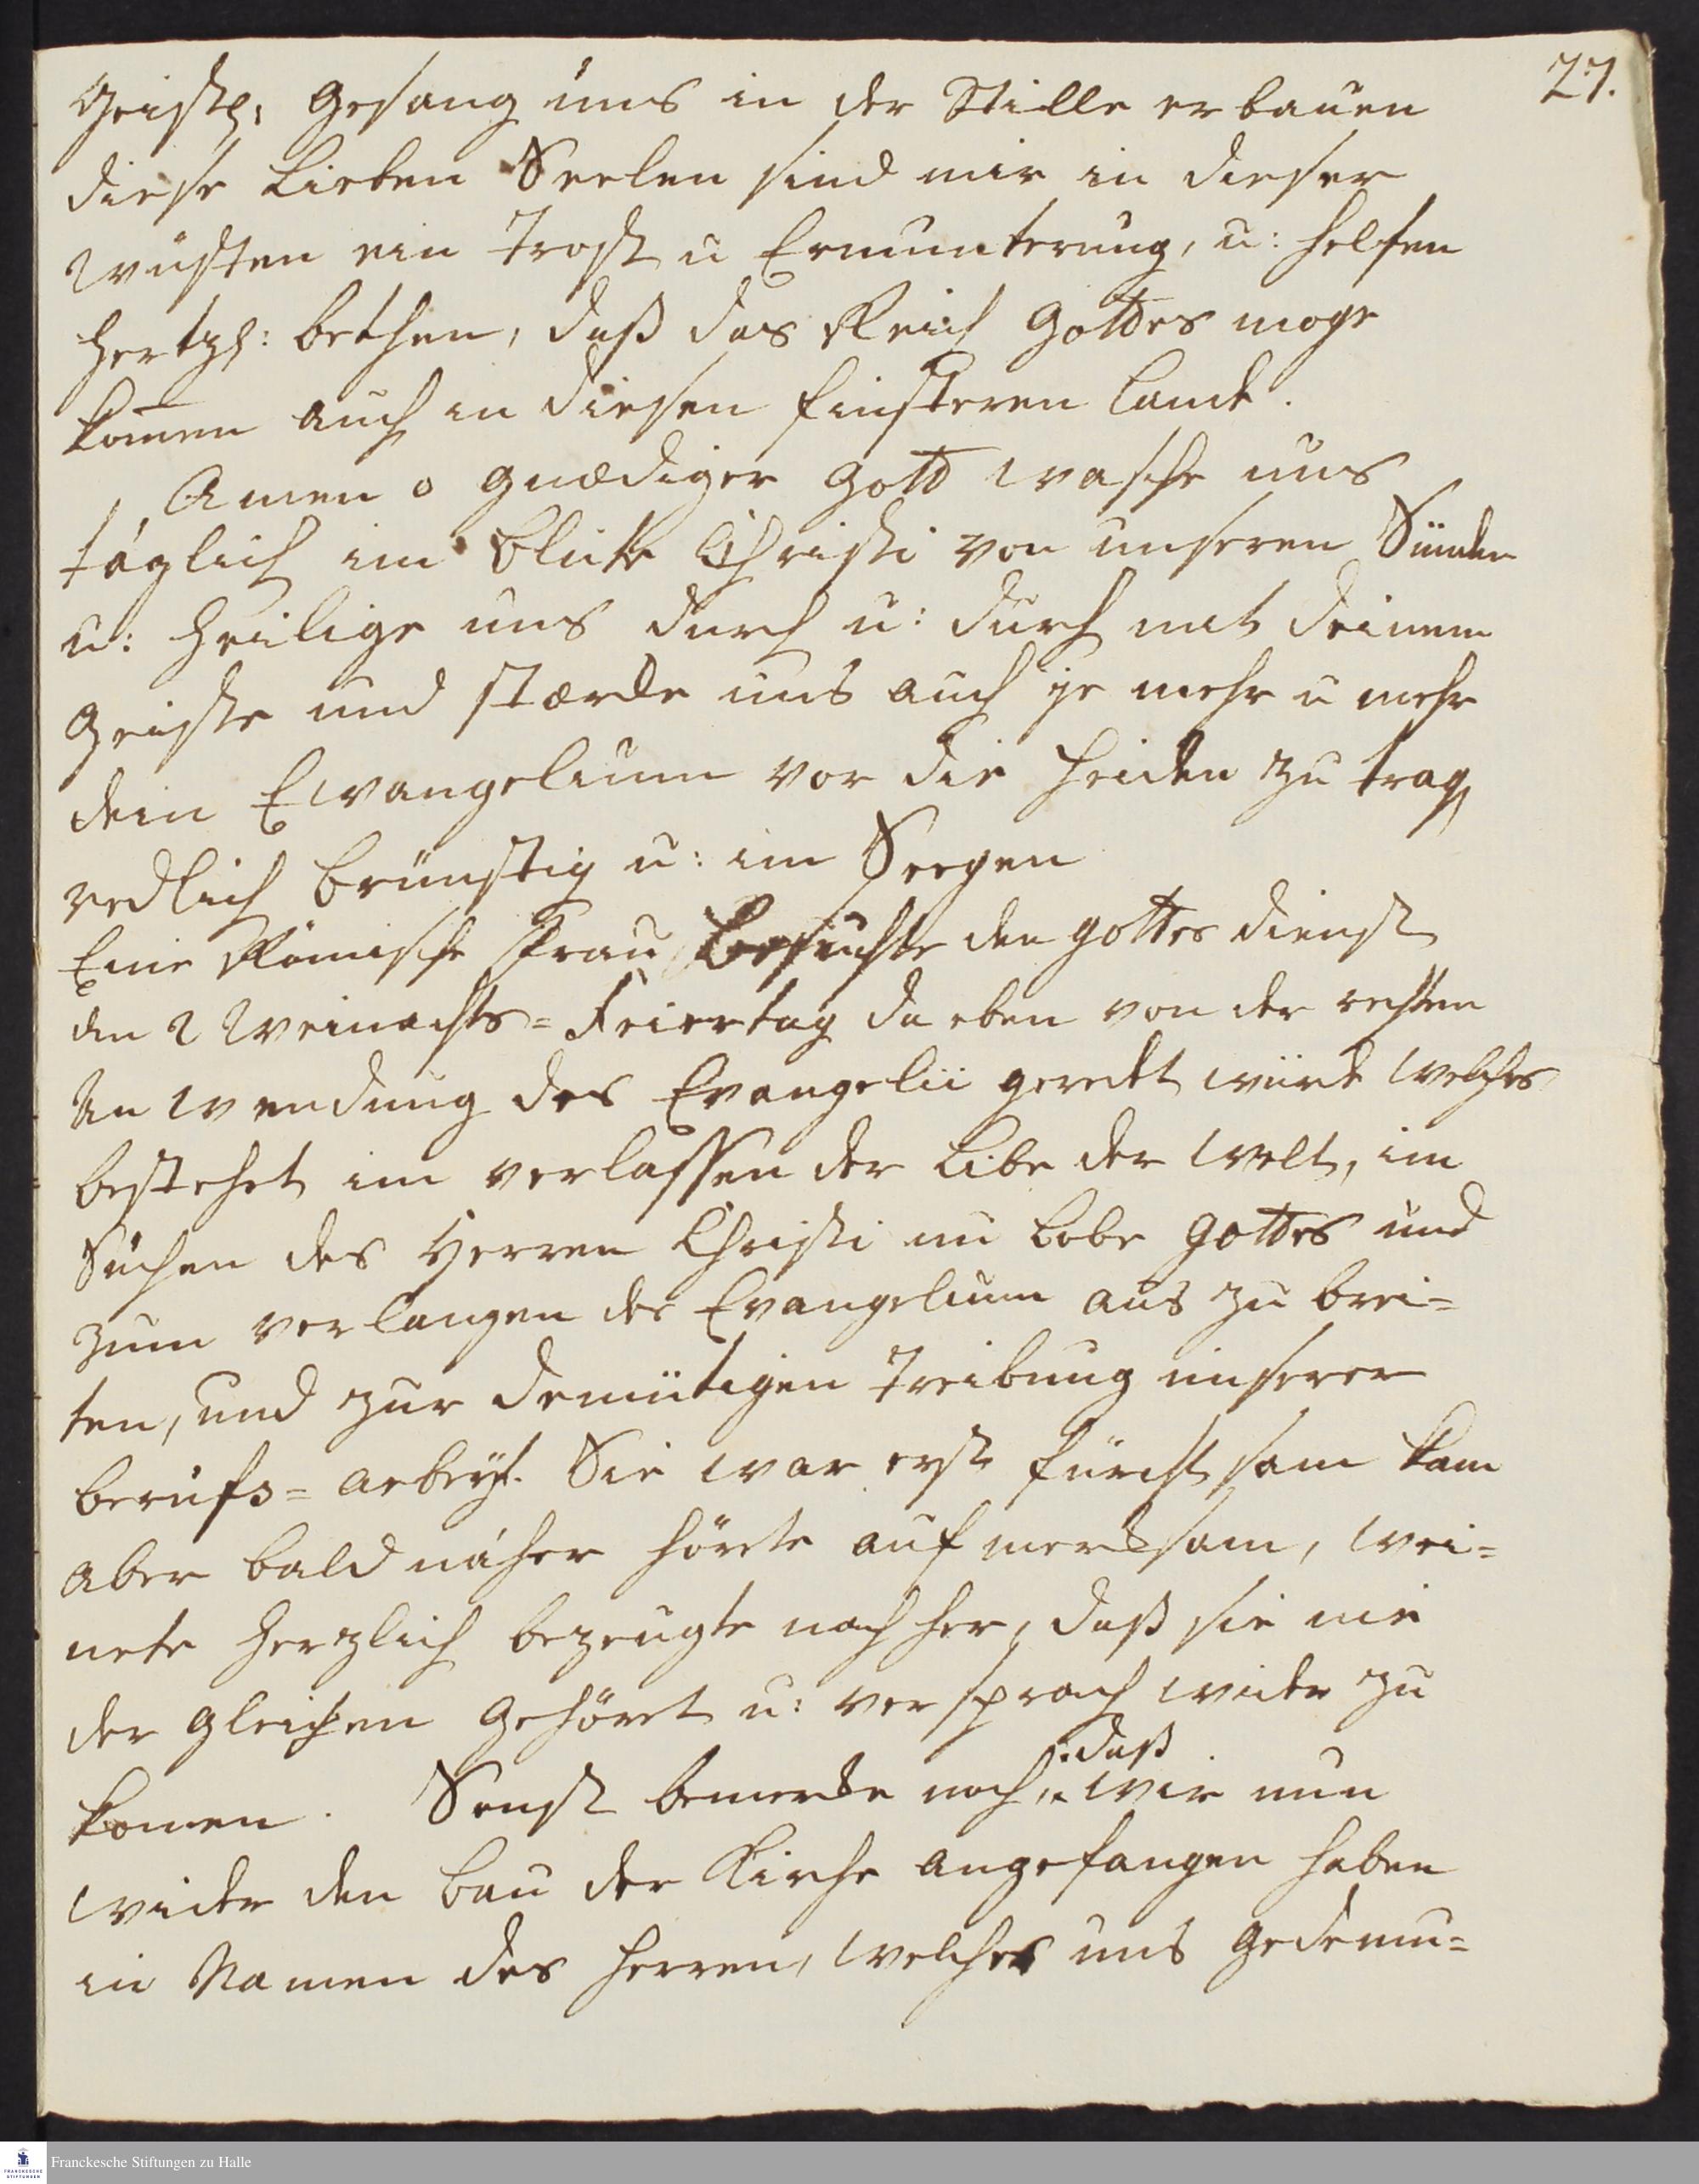 27.
Geistl: Gesang uns in der Stille erbauen
diese Lieben Seelen sind mir in dieser
Wüsten ein Trost u Ermunterung, u: helfen
hertzl: bethen, daß das Reich Gottes moge
kom̄en auch in diesen finsteren Lande.
Amen o gnædiger Gott wasche uns
täglich im Blute Christi von unseren Sünden
u: heilige uns durch u: durch mit deinem
Geiste und stærcke uns auch je mehr u mehr
dein Ewangelium vor die Heiden zu trag
redlich brünstig u: im Seegen
Eine Römische Frau Besuchte den gottes dienst
den 2 Weinachts=Feiertag da eben von der rechten
An wendung des Evangelii geredet würde welches
bestehet im verlassen der Libe der Welt, im
Suchen des Herren Christi im Lobe Gottes und
zum verlangen das Evangelium aus zu brei=
ten, und zur demütigen Treibung unserer
berufs=arbeyt. Sie war erst fürcht sam kam
aber bald näher hörete auf mercksam, wei=
nete herzlich bezeugte nach her, daß sie nie
der gleichen gehöret u: ver sprach wider zu
komen. Sonst bemercke noch daß wir nun
wider den Bau der Kirche angefangen haben
in Namen des Herren, welcher uns gedemu=
Franckesche Stiftungen zu Halle
FRANCKESCHE
STIFTUNGEN